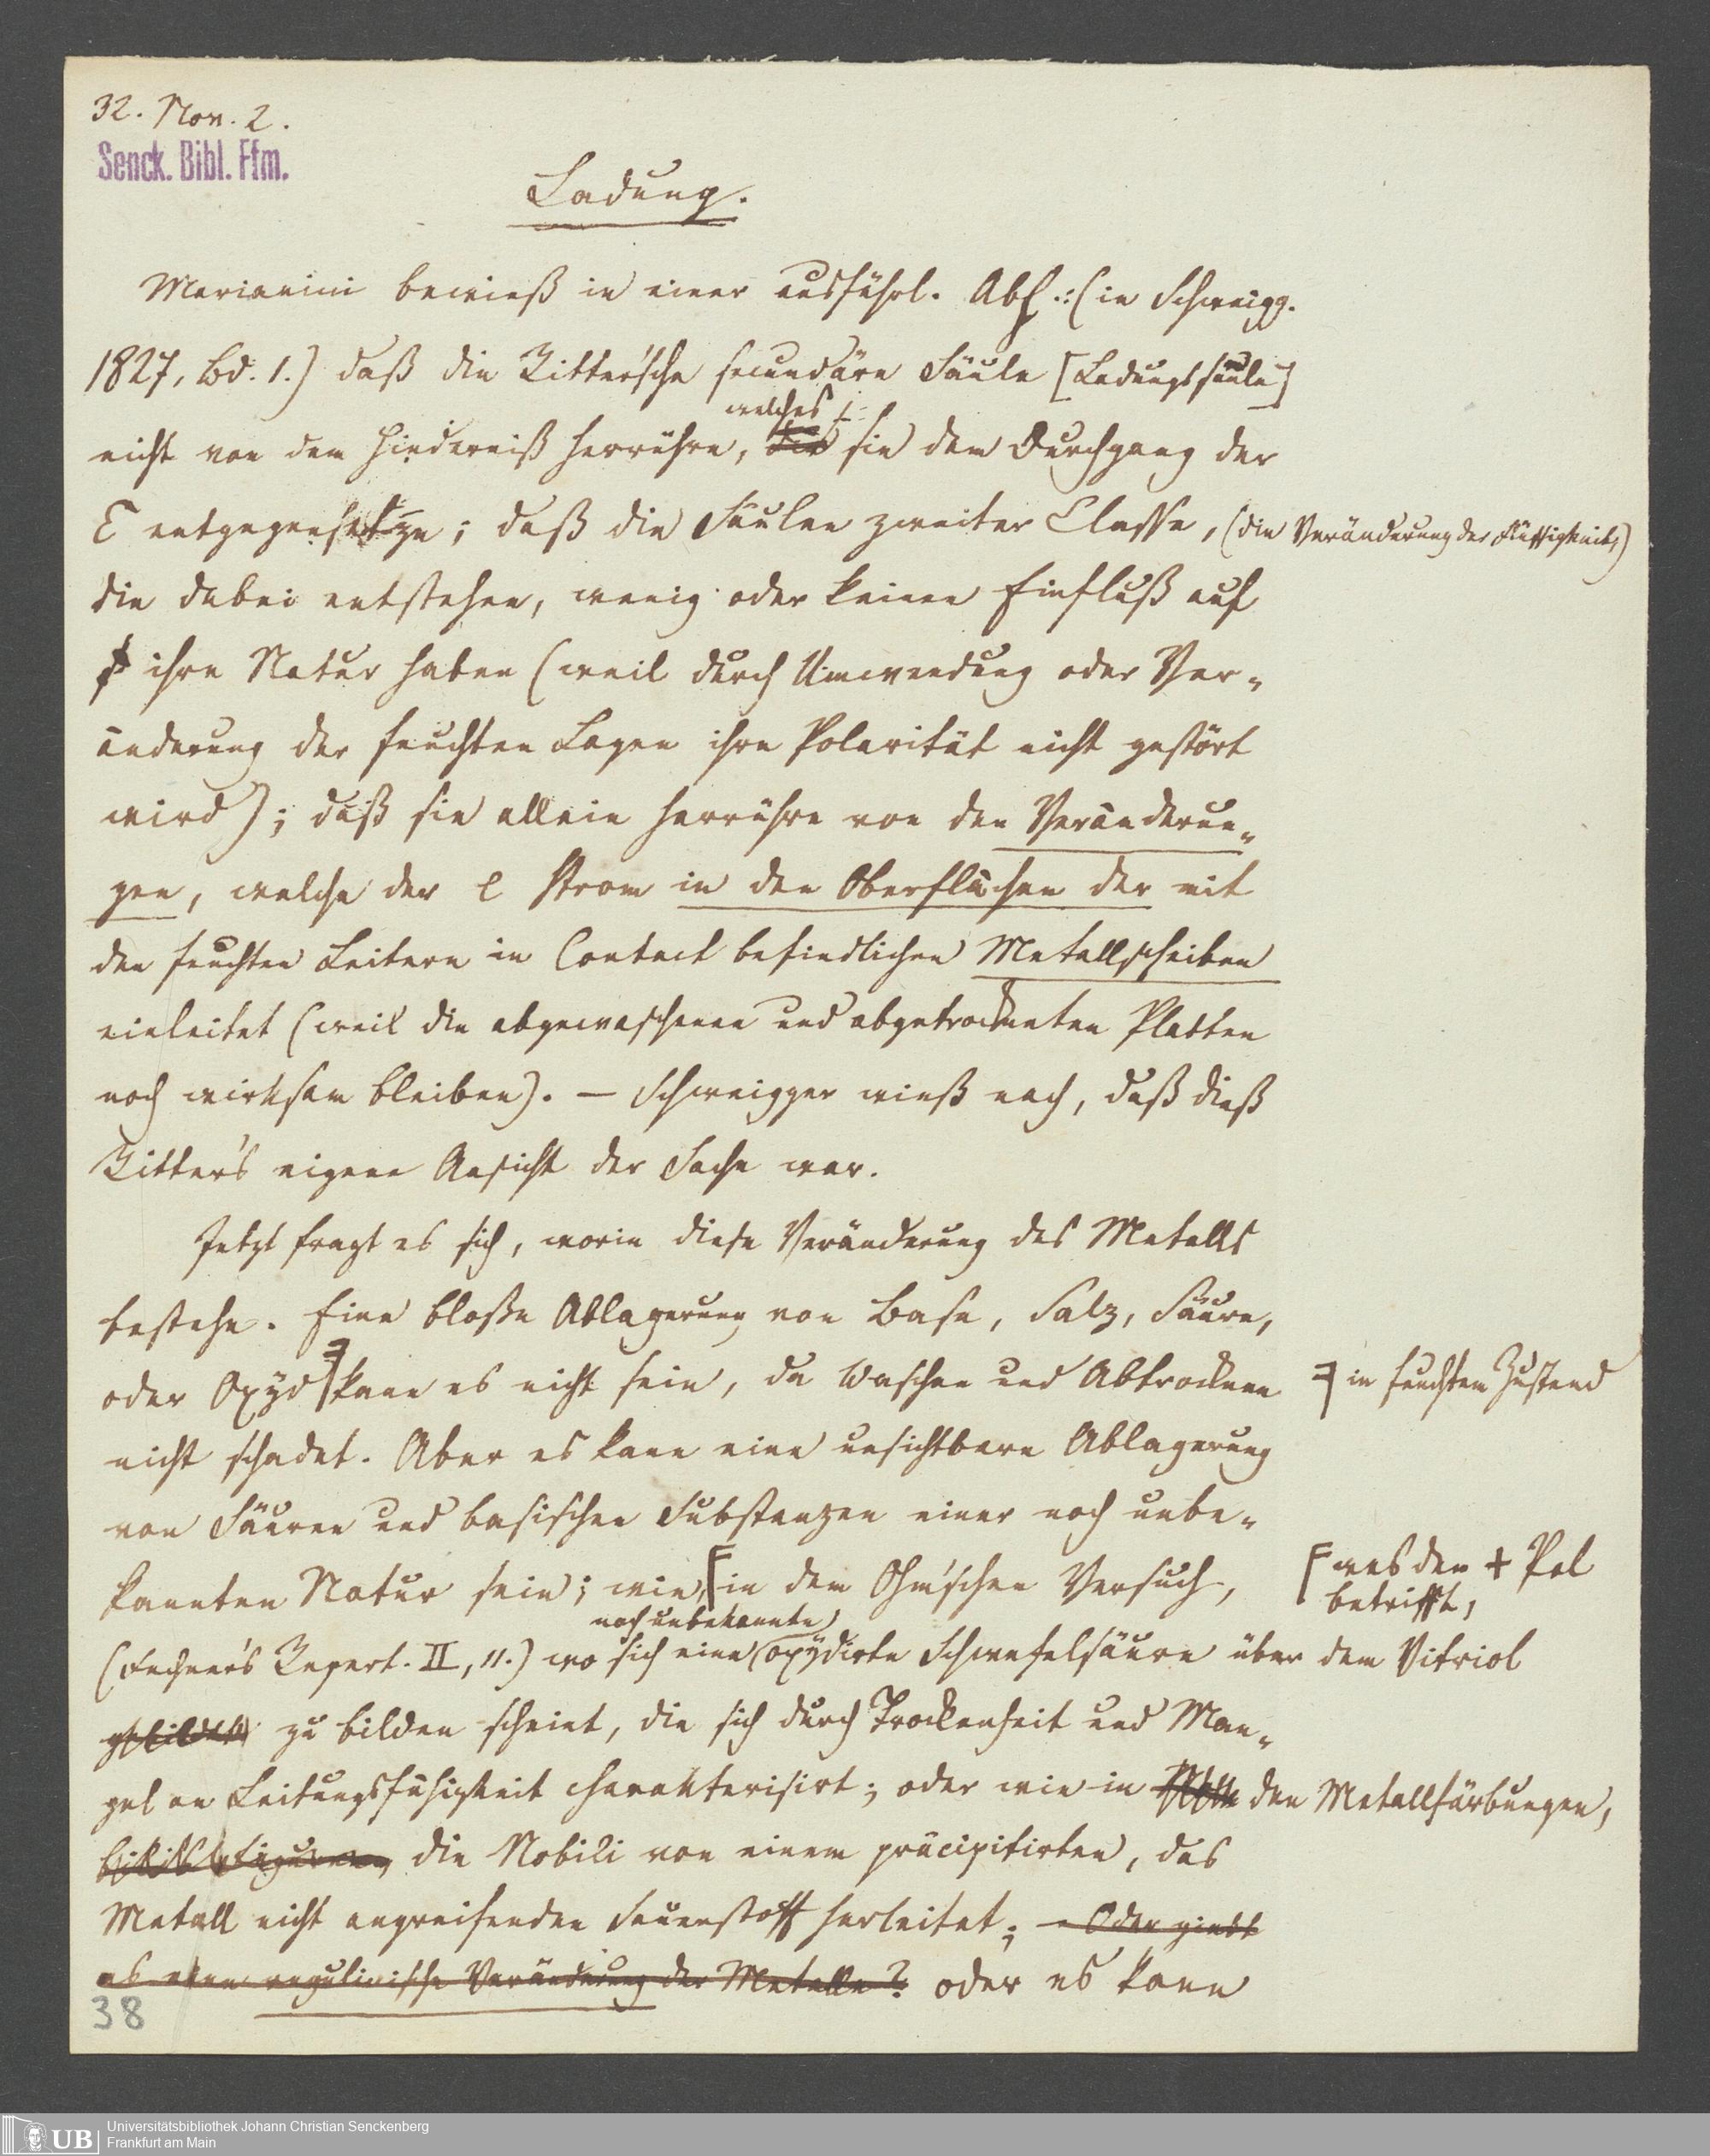 32. Nov. 2.
Senck. Bibl. Ffm.
Ladung.
Marianini bewieß in einer ausführl. Abh.: (in Schweigg.
1827, Bd. 1.) daß die Ritter'sche secundäre Säule [Ladungssäule]
welches
nicht von dem Hinderniß herrühre, die sie dem Durchgang der
E entgegensetze; daß die Säulen zweiter Classe, (die Veränderung der Flüssigkeit,)
die dabei entstehen, wenig oder keinen Einfluß auf
ihre Natur haben (weil durch Umwendung oder Ver-
änderung der feuchten Lagen ihre Polarität nicht gestört
wird); daß sie allein herrühre von den Veränderun-
gen, welche der e Strom in den Oberflächen der mit
den feuchten Leitern in Contact befindlichen Metallscheiben
einleitet (weil die abgewaschenen und abgetrockneten Platten
noch wirksam bleiben). — Schweigger wieß nach, daß dieß
Ritter's eigene Ansicht der Sache war.
Jetzt fragt es sich, worin diese Veränderung des Metalls
bestehe. Eine bloße Ablagerung von Base, Salz, Säure,
oder Oxyd kann es nicht sein, da Waschen und Abtrocknen
in feuchtem Zustand
nicht schadet. Aber es kann eine unsichtbare Ablagerung
von Säuren und basischen Substanzen einer noch unbe-
kannten Natur sein; wie, in dem Ohm'schen Versuch,
was den + Pol
betrifft,
noch unbekannte
(Fechner's Repert. II, 11.) wo sich eine oxydirte Schwefelsäure über dem Vitriol
gebildet zu bilden scheint, die sich durch Trockenheit und Man-
gel an Leitungsfähigkeit charakterisirt; oder wie in den Metallfärbungen,
die Nobili von einem präcipitirten, das
Metall nicht angreifenden Sauerstoff herleitet; – Oder giebt
es eine regulinische Veränderung der Metalle? oder es kann
38
UB Universitätsbibliothek Johann Christian Senckenberg
Frankfurt am Main